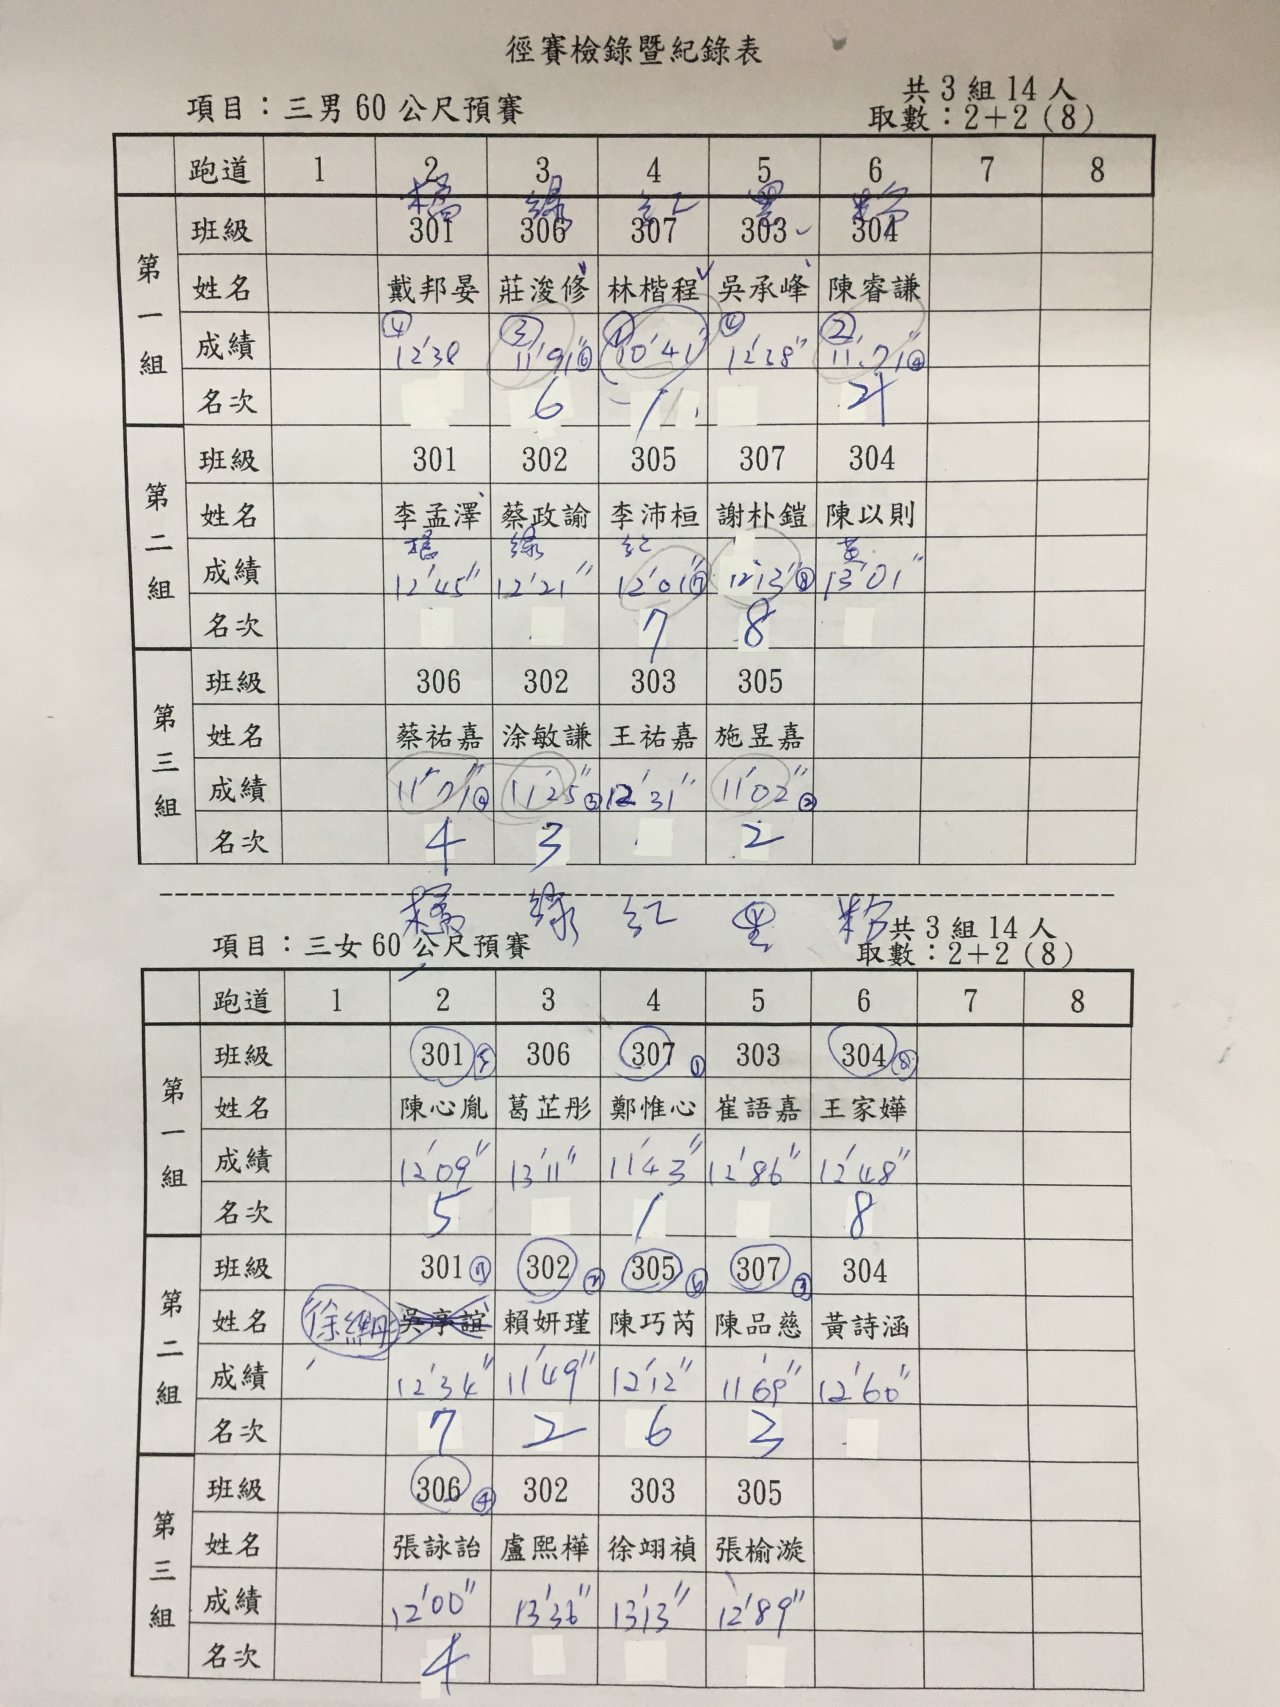 徑賽檢錄暨紀錄表
項目：三男60公尺預賽
共3組14人
取數：2+2(8)
跑道 1 2 3 4 5 6 7 8
橘 綠 紅 黑 粉
第一組
班級 301 306 307 303 304
姓名 戴邦晏 莊浚修 林楷程 吳承峰 陳睿謙
④ ③ ① ④ ②
成績 12'38 11'91"⑥ 10'41" 12'38" 11'71"④
名次 6 1 4
第二組
班級 301 302 305 307 304
姓名 李孟澤 蔡政諭 李沛桓 謝朴鎧 陳以則
橘 綠 紅 黃
成績 12'45" 12'21" 12'01"⑦ 12'13"⑧ 13'01"
名次 7 8
第三組
班級 306 302 303 305
姓名 蔡祐嘉 涂敏謙 王祐嘉 施昱嘉
成績 11'71"④ 11'25"③ 12'31" 11'02"②
名次 4 3 2
橘 綠 紅 黑 粉
項目：三女60公尺預賽
共3組14人
取數：2+2(8)
跑道 1 2 3 4 5 6 7 8
第一組
班級 301⑤ 306 307① 303 304⑧
姓名 陳心胤 葛芷彤 鄭惟心 崔語嘉 王家嬅
成績 12'09" 13'11" 11'43" 12'86" 12'48"
名次 5 1 8
第二組
班級 301⑦ 302② 305⑥ 307③ 304
姓名 吳享誼 賴妍瑾 陳巧芮 陳品慈 黃詩涵
成績 12'34" 11'49" 12'12" 11'69" 12'60"
名次 7 2 6 3
第三組
班級 306④ 302 303 305
姓名 張詠詒 盧熙樺 徐翊禎 張榆漩
成績 12'00" 13'36" 13'13" 12'89"
名次 4